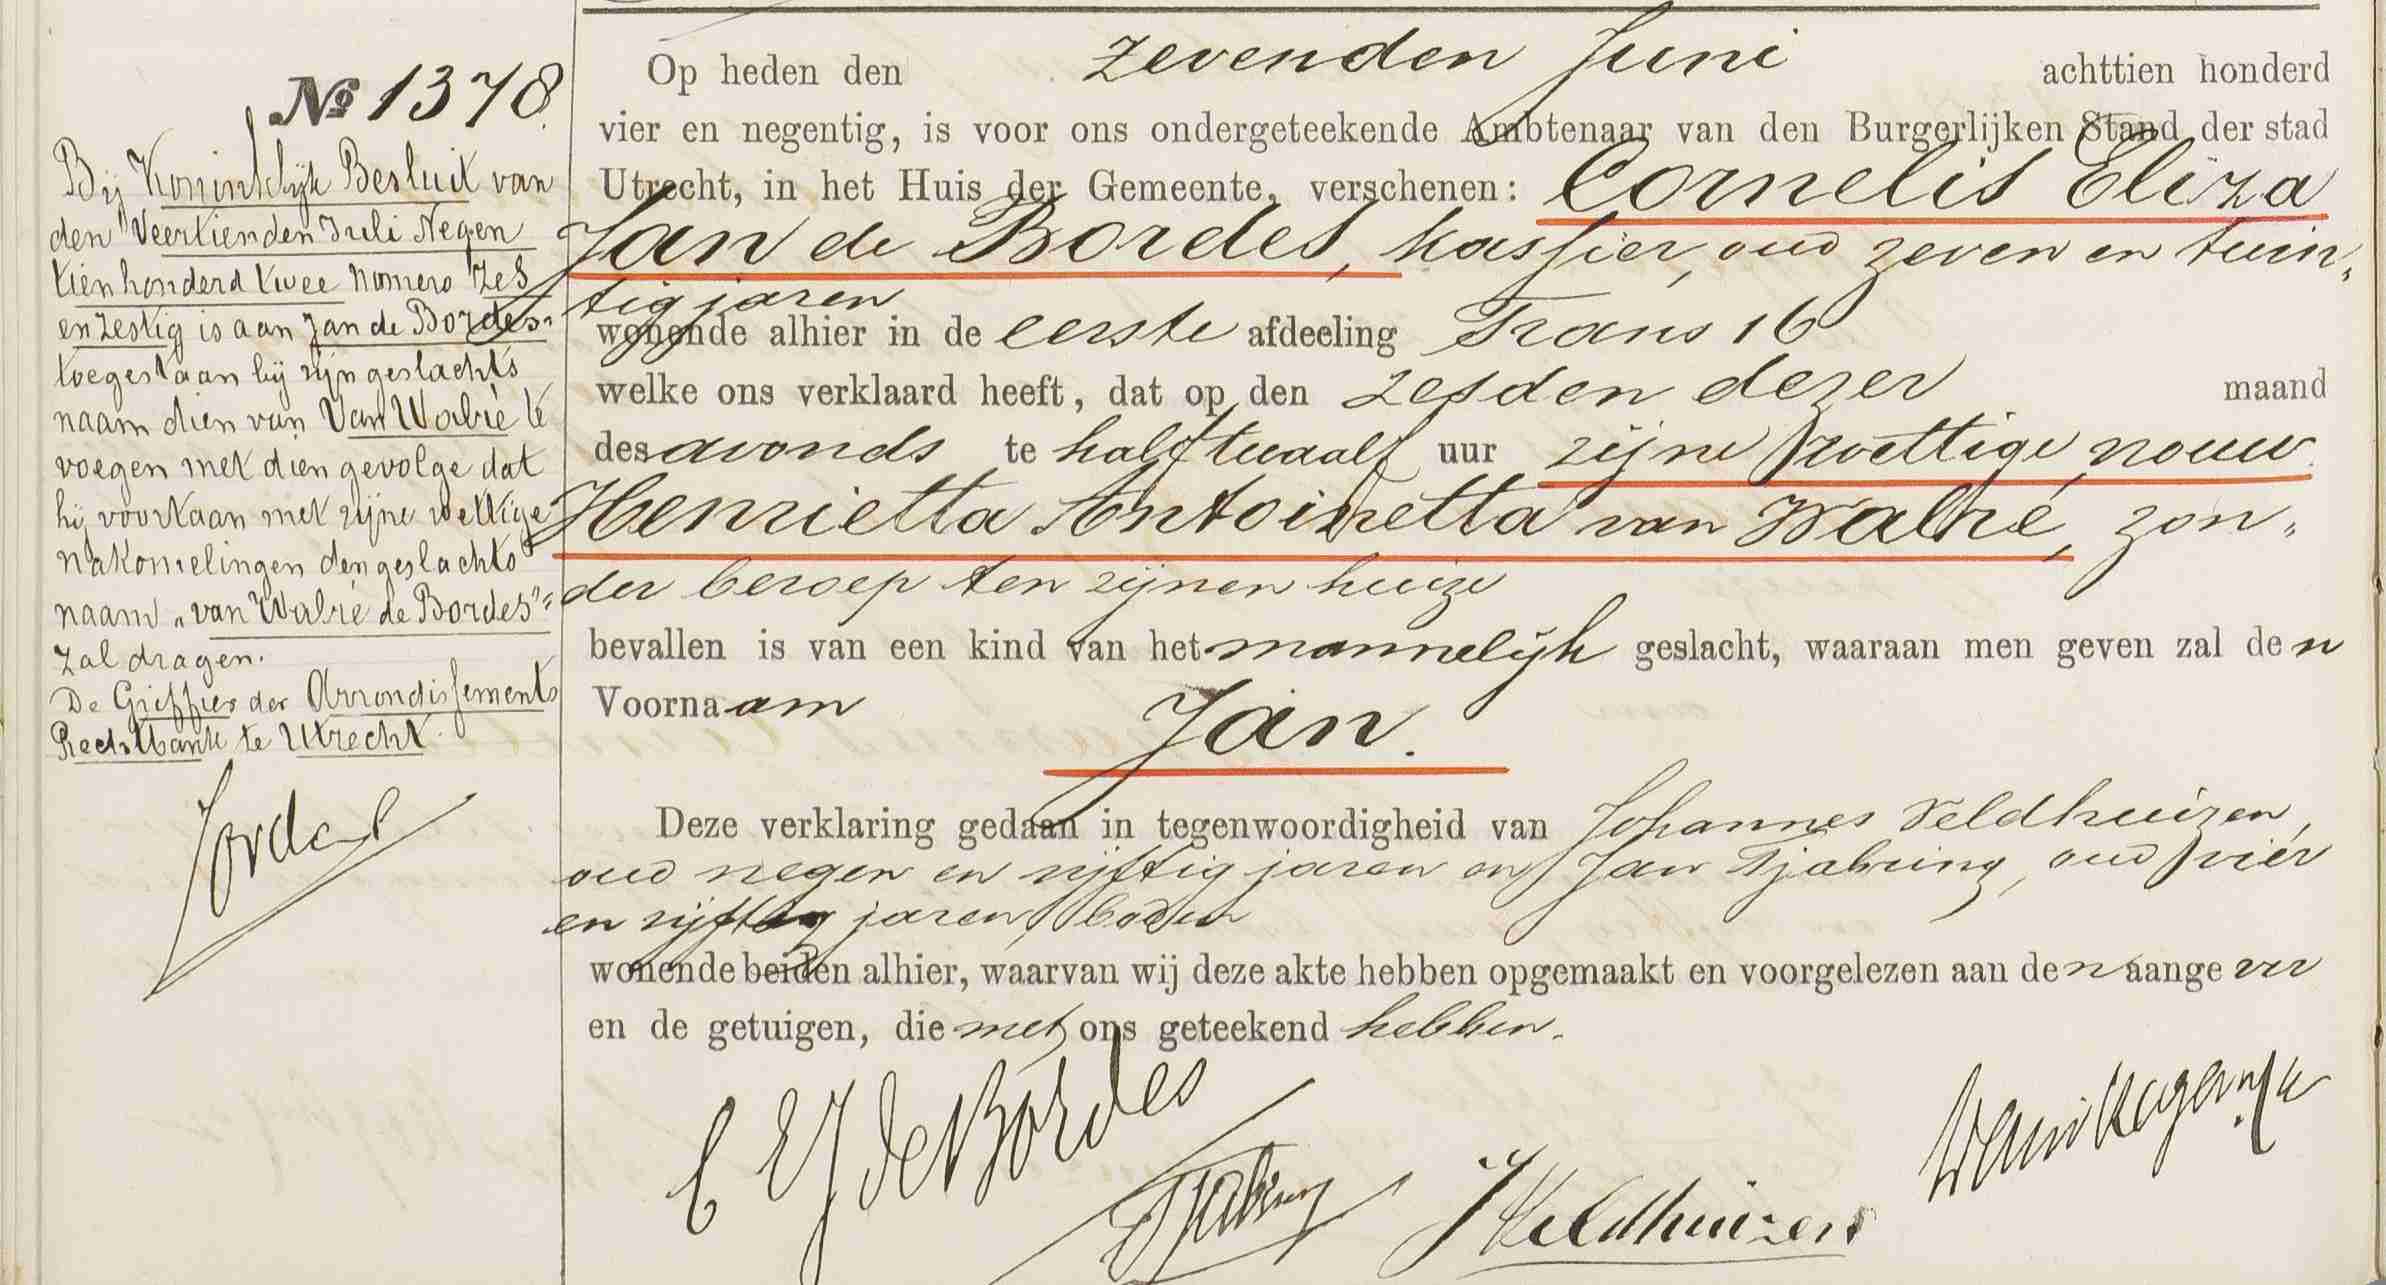 № 1378.
Bij Koninklijk Besluit van
den Veertienden Juli Negen
tienhonderd twee Nomero Zes
en zestig is aan Jan de Bordes
toegestaan bij zijn geslachts
naam dien van Van Walré te
voegen met dien gevolge dat
hij voortaan met zijne wettige
nakomelingen den geslachts
naam „van Walré de Bordes"
zal dragen.
De Griffier der Arrondissements
Rechtbank te Utrecht.
Op heden den zevenden Juni achttien honderd
vier en negentig, is voor ons ondergeteekende Ambtenaar van den Burgerlijken Stand der stad
Utrecht, in het Huis der Gemeente, verschenen: Cornelis Eliza
Jan de Bordes, kassier, oud zeven en twin„
tig jaren
wonende alhier in de eerste afdeeling Trans 16
welke ons verklaard heeft, dat op den zesden dezer maand
des avonds te half twaalf uur zijne wettige vrouw
Henrietta Antoinetta van Walré, zon„
der beroep ten zijnen huize
bevallen is van een kind van het mannelijk geslacht, waaraan men geven zal den
Voornaam Jan.
Deze verklaring gedaan in tegenwoordigheid van Johannes Veldhuizen,
oud negen en vijftig jaren en Jan Tjabring, oud vier
en vijftig jaren, boden
wonende beiden alhier, waarvan wij deze akte hebben opgemaakt en voorgelezen aan den aangever
en de getuigen, die met ons geteekend hebben.
C E J de Bordes
Tjabring
J Veldhuizen